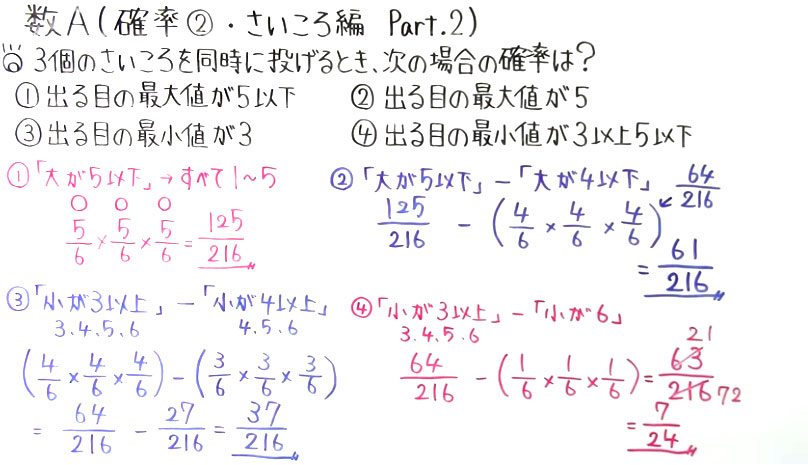 数A(確率②・さいころ編 Part.2)
3個のさいころを同時に投げるとき、次の場合の確率は?
① 出る目の最大値が5以下 ② 出る目の最大値が5
③ 出る目の最小値が3 ④ 出る目の最小値が3以上5以下
①「大が5以下」→すべて1~5
○ ○ ○
5/6 × 5/6 × 5/6 = 125/216
②「大が5以下」-「大が4以下」 64/216
125/216 - (4/6 × 4/6 × 4/6)
= 61/216
③「小が3以上」-「小が4以上」
3.4.5.6 4.5.6
(4/6 × 4/6 × 4/6) - (3/6 × 3/6 × 3/6)
= 64/216 - 27/216 = 37/216
④「小が3以上」-「小が6」
3.4.5.6
64/216 - (1/6 × 1/6 × 1/6) = 63/216 21 72
= 7/24